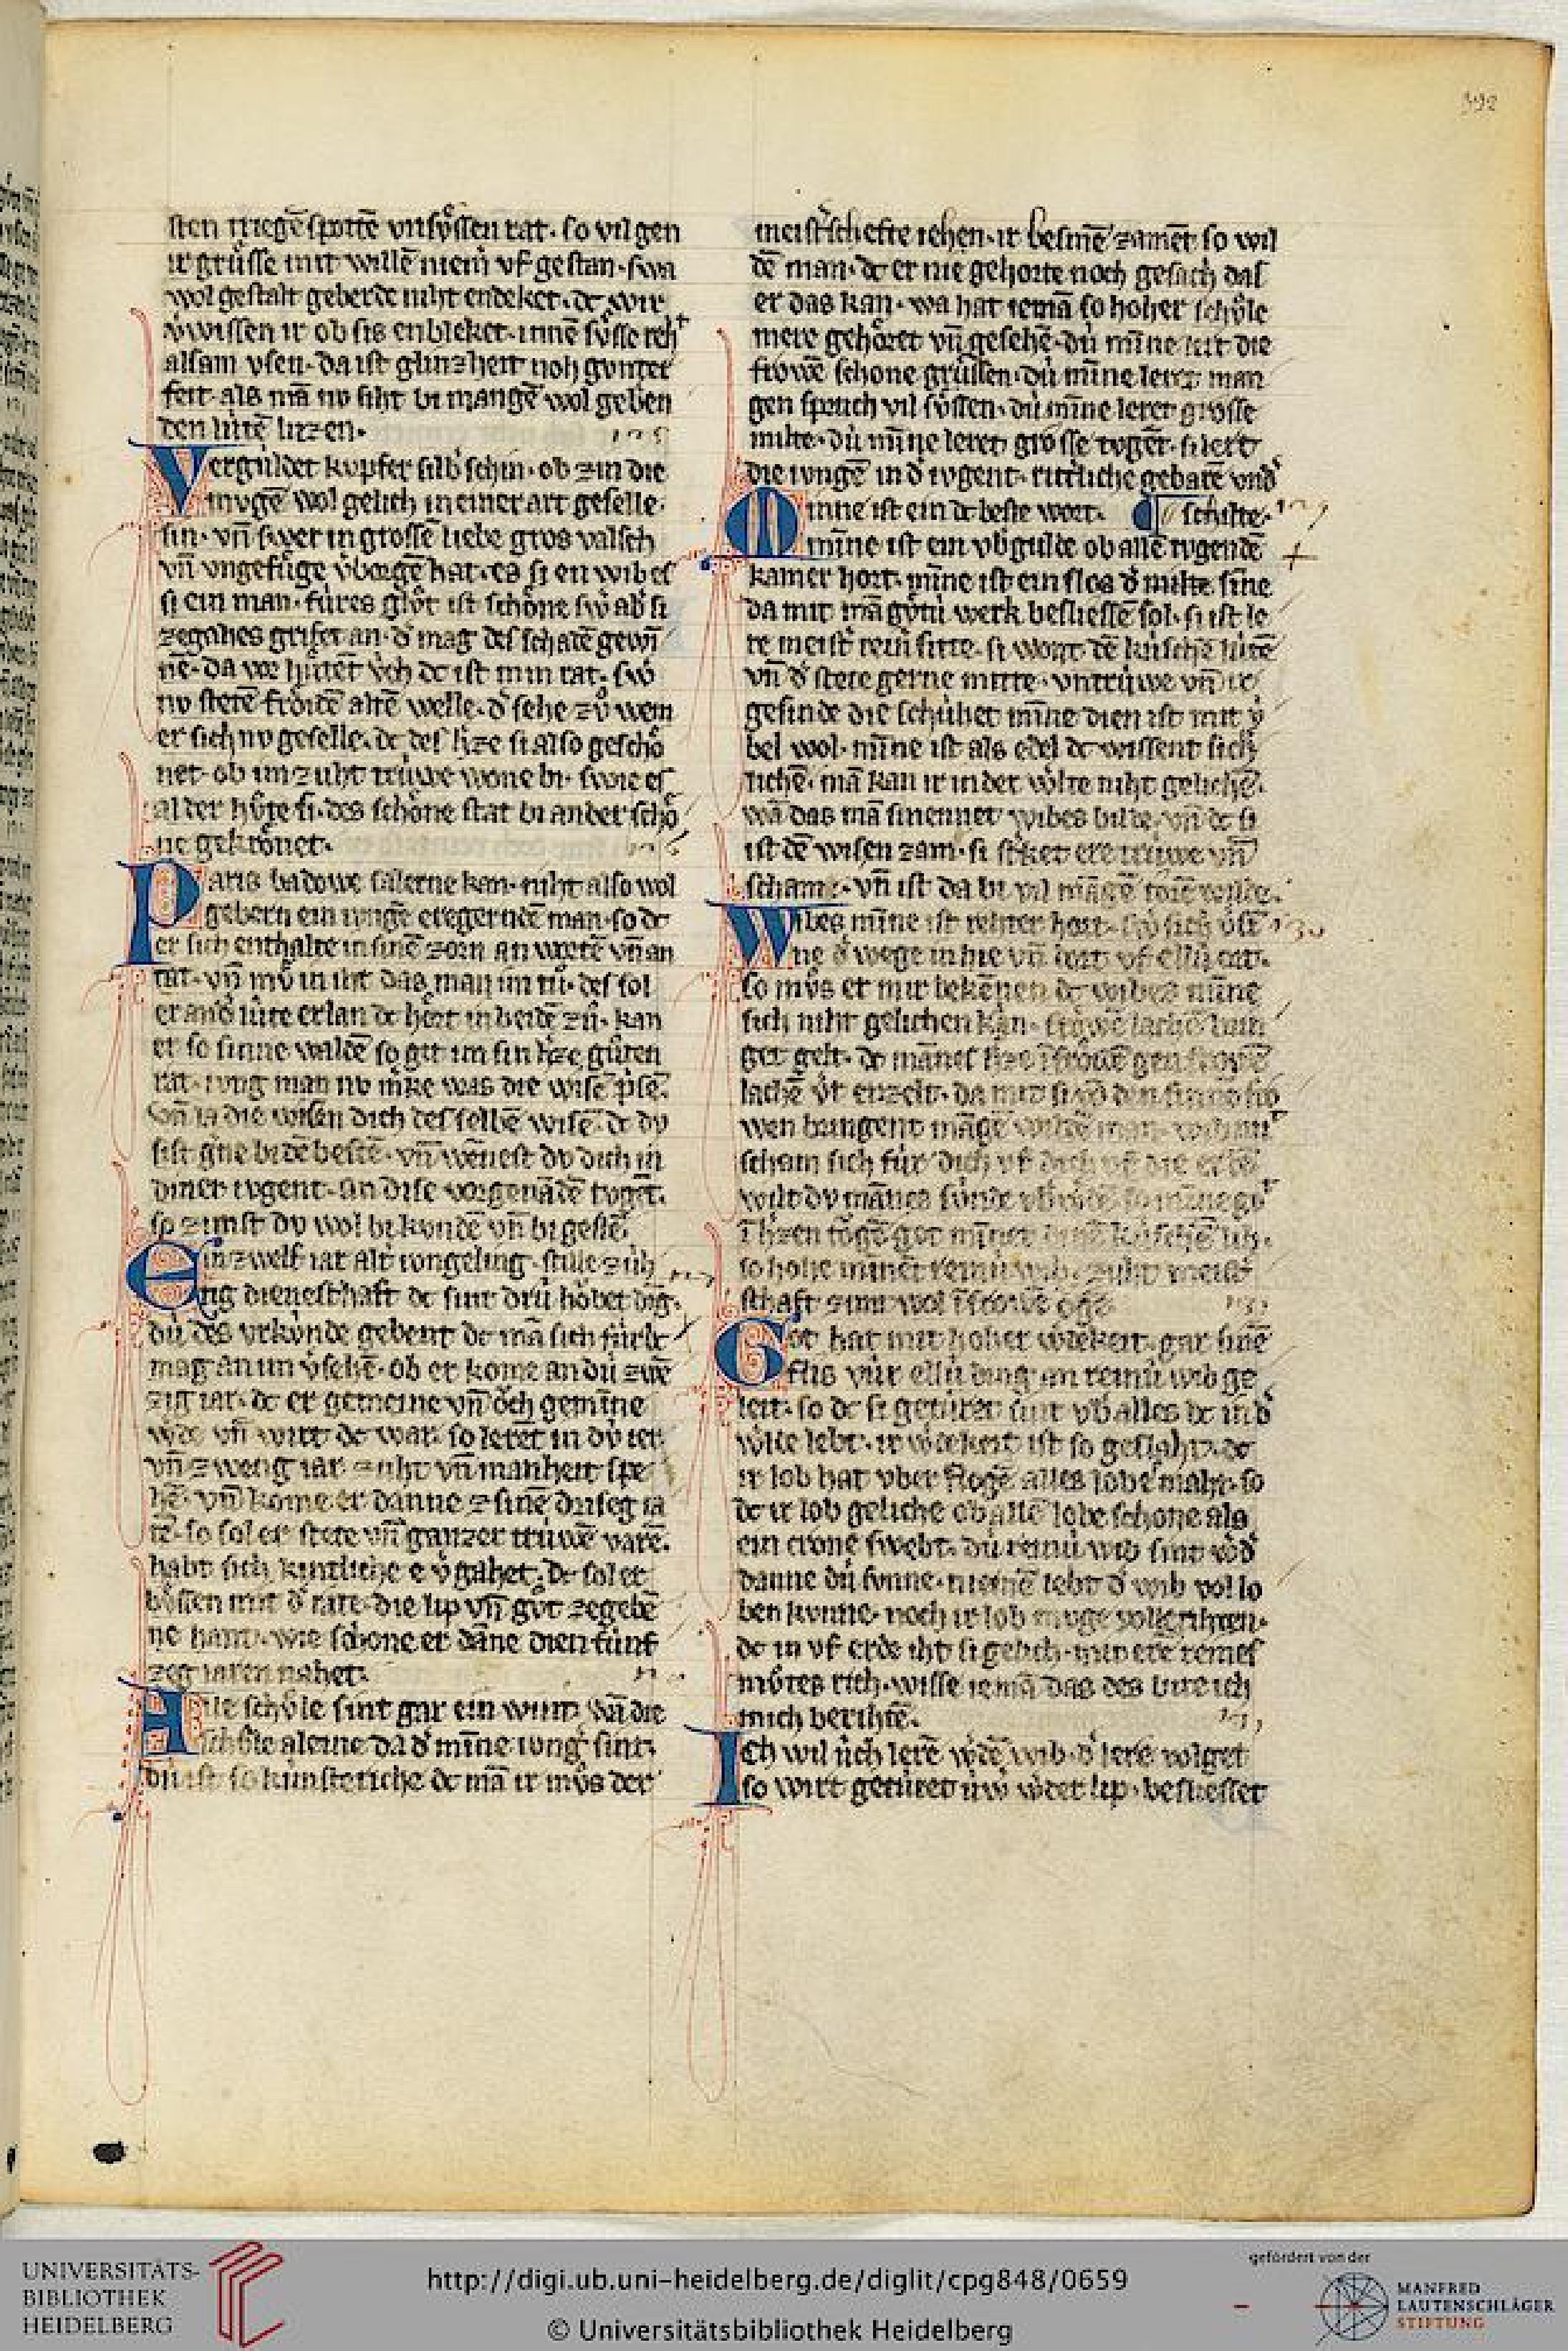 392
sten triegē spottē vnsv̊ssen rat. so vil gen
ir gru̍sse mit willē niem̄ vf gestan. swa
wol gestalt geberde niht endeket. dc wir
wissen ir ob sis enbleket. innē sv̊sse reht
alsam vsen. da ist glunzheit noh gvnter
feit. als mā nv siht bi mangē wol geben
den lu̍tē luzen.
Vergu̍ldet kvpfer silb̾ schin. ob zin die
mvgē wol gelich in einer art geselle
sin. vn̄ swer in grossē liebe gros valsch
vn̄ vngefu̍ge v̾borgē hat. es si en wib es
si ein man. fu̍res glv̊t ist schōne sw̾ ab̾ si
zegahes grifet an. d̾ mag des schadē gewī
nē. da vor hu̍tet v̍ch dc ist min rat. sw̾
nv stetē frōidē altē welle. d̾ sehe zv̊ wem
er sich nv geselle. dc des h̾ze si also geschō
net. ob im zuht tru̍we wone bi. swie es
alder hu̍te si. des schōne stat bi ander schō
ne gekrōnet.
Paris badowe salerne kan. niht also wol
gebern ein ivngē eregerndē man. so dc
er sich enthalte in sinē zorn an wortē vn̄ an
tat. vn̄ mv̊ in iht das man im tu̍. des sol
er and̾ lu̍te erlan dc hōrt in beidē zu̍. kan
er so sinne waldē so git im sin h̾ze gu̍ten
rat. ivng man nv m̾ke was die wisē p̾sē.
vn̄ la die wisen dich des selbē wisē. dc dv
sist g̾ne bi dē bestē. vn̄ wēnest dv dich in
diner tvgent. an dise vorgenādē tvgēt.
so zimst dv wol bi kvndē vn̄ bi gestē.
Ein zwelf iar alt ivngeling. stille zu̍h
tig dienesthaft dc sint dru̍ hōbet dīg.
du̍ des vrku̍nde gebent dc mā sich fu̍r dc
mag an im v̾sehē. ob er kome an du̍ zwē
zig iar. dc er gemeine vn̄ ōch gemīne
w̾de vn̄ wirt dc war. so leret in dv ier
vn̄ zweng iar. zuht vn̄ manheit spe
hē. vn̄ kome er danne z sinē driseg ia
rē. so sol er stete vn̄ ganzer tru̍wē varē.
habt sich kintliche e v̾gahet. dc sol er
bōssen mit d̾ rate. die lip vn̄ gv̊t zegebē
ne hant. wie schone er dāne dien fu̍nf
zeg iaren nahet.
Alle schv̊le sint gar ein wint. wā die
schv̊le aleine da d̾ mīne ivng̾ sint.
du̍ ist so ku̍nsteriche dc mā ir mv̊s der
meist̾schefte iehen. ir besmē zamēt so wil
dē man. dc er nie gehorte noch gesach das
er das kan. wa hat iemā so hoher schv̊le
mere gehōret vn̄ gesehē. du̍ mīne lert die
frowē schone gru̍ssen. du̍ mīne leret man
gen sprvch vil sv̊ssen. du̍ mīne leret grosse
milte. du̍ mīne leret grosse tvgēt. si lert
die ivngē in d̾ ivgent. ritt̾liche gebarē vnd̾
schilte.
Minne ist ein dc beste wort.
mīne ist ein v̍bgu̍lde ob allē tvgendē
kamer hort. mīne ist ein slos d̾ milte sīne
da mit mā gv̊tu̍ werk besliessē sol. si ist le
re meist̾ reini sitte. si wont dē ku̍schē lu̍tē
vn̄ d̾ stete gerne mitte. vntru̍we vn̄ ir
gesinde die schu̍het mīne dien ist mit v̍
bel wol. mīne ist als edel dc wissent sich̾
lichē. mā kan ir in der w̾lte niht gelichē.
wā das mā sinennet wibes bilde. vn̄ dc si
ist dē wisen zam. si st̾ket ere tru̍we vn̄
scham. vn̄ ist da bi vil māgē torē wilde.
Wibes mīne ist reiner hort. sw̾ sich v̾sī
ne d̾ wege in hie vn̄ dort vf ellu̍ ort.
so mv̊s er mir bekēnen dc wibes mīne
sich niht gelichen kan.
get gelt. dc mānes h̾ze
lachē
wen bringent māgē wildē man.
scham sich fu̍r dich
wilt dv mānes
so hohe mīnet reinu̍ wib. zuht meist̾
schaft zimt wol
Got hat mit hoher w̾dekeit. gar sinē
flis vu̍r ellu̍ ding an reinu̍ wib ge
leit. so dc si getu̍ret sint v̍b alles dc in d̾
w̾lte lebt. ir w̾dekeit ist so geslaht. dc
ir lob hat vber flogē alles lobes maht. so
dc ir lob geliche ob allē lobe schone als
ein crone swebt. du̍ reinu̍ wib sint w̾d̾
danne du̍ svnne. niemē lebt d̾ wib vol lo
ben kvnne. noch ir lob mvge vollerihten.
dc in vf erde iht si gelich. mit ere reines
mv̊tes rich. wisse iemā das des bitte ich
mich berihtē.
Ich wil u̍ch lerē w̾dē wib. d̾ lere volget
so wirt getu̍ret u̍w̾ w̾der lip. besliesset
UNIVERSITÄTS-
BIBLIOTHEK
HEIDELBERG
http://digi.ub.uni-heidelberg.de/diglit/cpg848/0659
© Universitätsbibliothek Heidelberg
gefördert von der
MANFRED
LAUTENSCHLÄGER
STIFTUNG